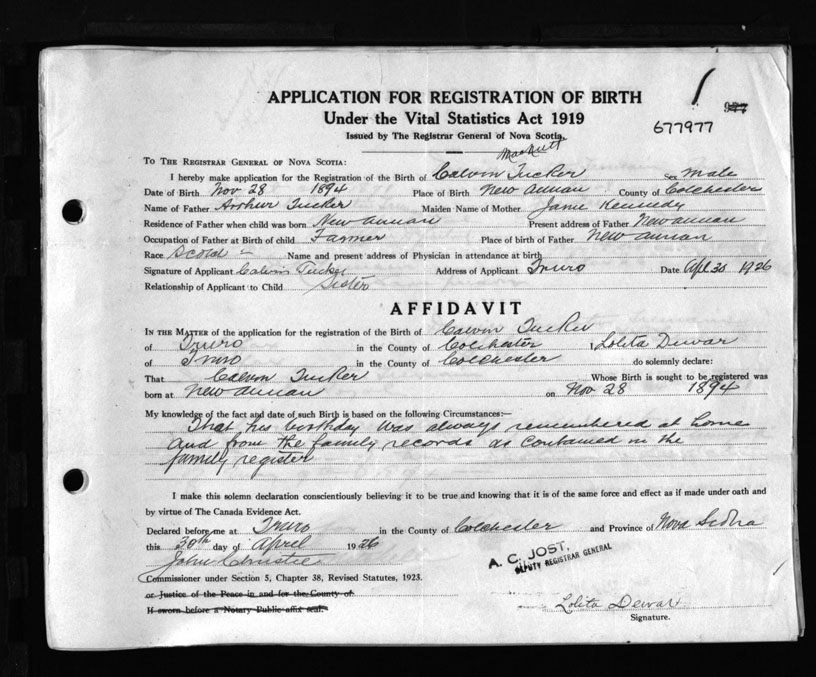 1
APPLICATION FOR REGISTRATION OF BIRTH
Under the Vital Statistics Act 1919
677977
Issued by The Registrar General of Nova Scotia.
MacNutt
To the Registrar General of Nova Scotia:
I hereby make application for the Registration of the Birth of Calvin Tucker Sex Male
Date of Birth Nov 28 1894 Place of Birth New Annan County of Colchester
Name of Father Arthur Tucker Maiden Name of Mother Jane Kennedy
Residence of Father when child was born New Annan Present address of Father New Annan
Occupation of Father at Birth of child Farmer Place of birth of Father New Annan
Race Scotch Name and present address of Physician in attendance at birth
Signature of Applicant Calvin Tucker Address of Applicant Truro Date Apl 30 1926
Relationship of Applicant to Child Sister
AFFIDAVIT
In the Matter of the application for the registration of the Birth of Calvin Tucker
of Truro in the County of Colchester I, Lolita Dewar
of Truro in the County of Colchester do solemnly declare:
That Calvin Tucker Whose Birth is sought to be registered was
born at New Annan on Nov 28 1894
My knowledge of the fact and date of such Birth is based on the following Circumstances:—
That his birthday was always remembered at home
and from the family records as contained in the
family register
I make this solemn declaration conscientiously believing it to be true and knowing that it is of the same force and effect as if made under oath and
by virtue of The Canada Evidence Act.
Declared before me at Truro in the County of Colchester and Province of Nova Scotia
this 30th day of April 1926
John Christie
A. C. JOST,
DEPUTY REGISTRAR GENERAL
Commissioner under Section 5, Chapter 38, Revised Statutes, 1923.
or Justice of the Peace in and for the County of
If sworn before a Notary Public affix seal.
Lolita Dewar
Signature.